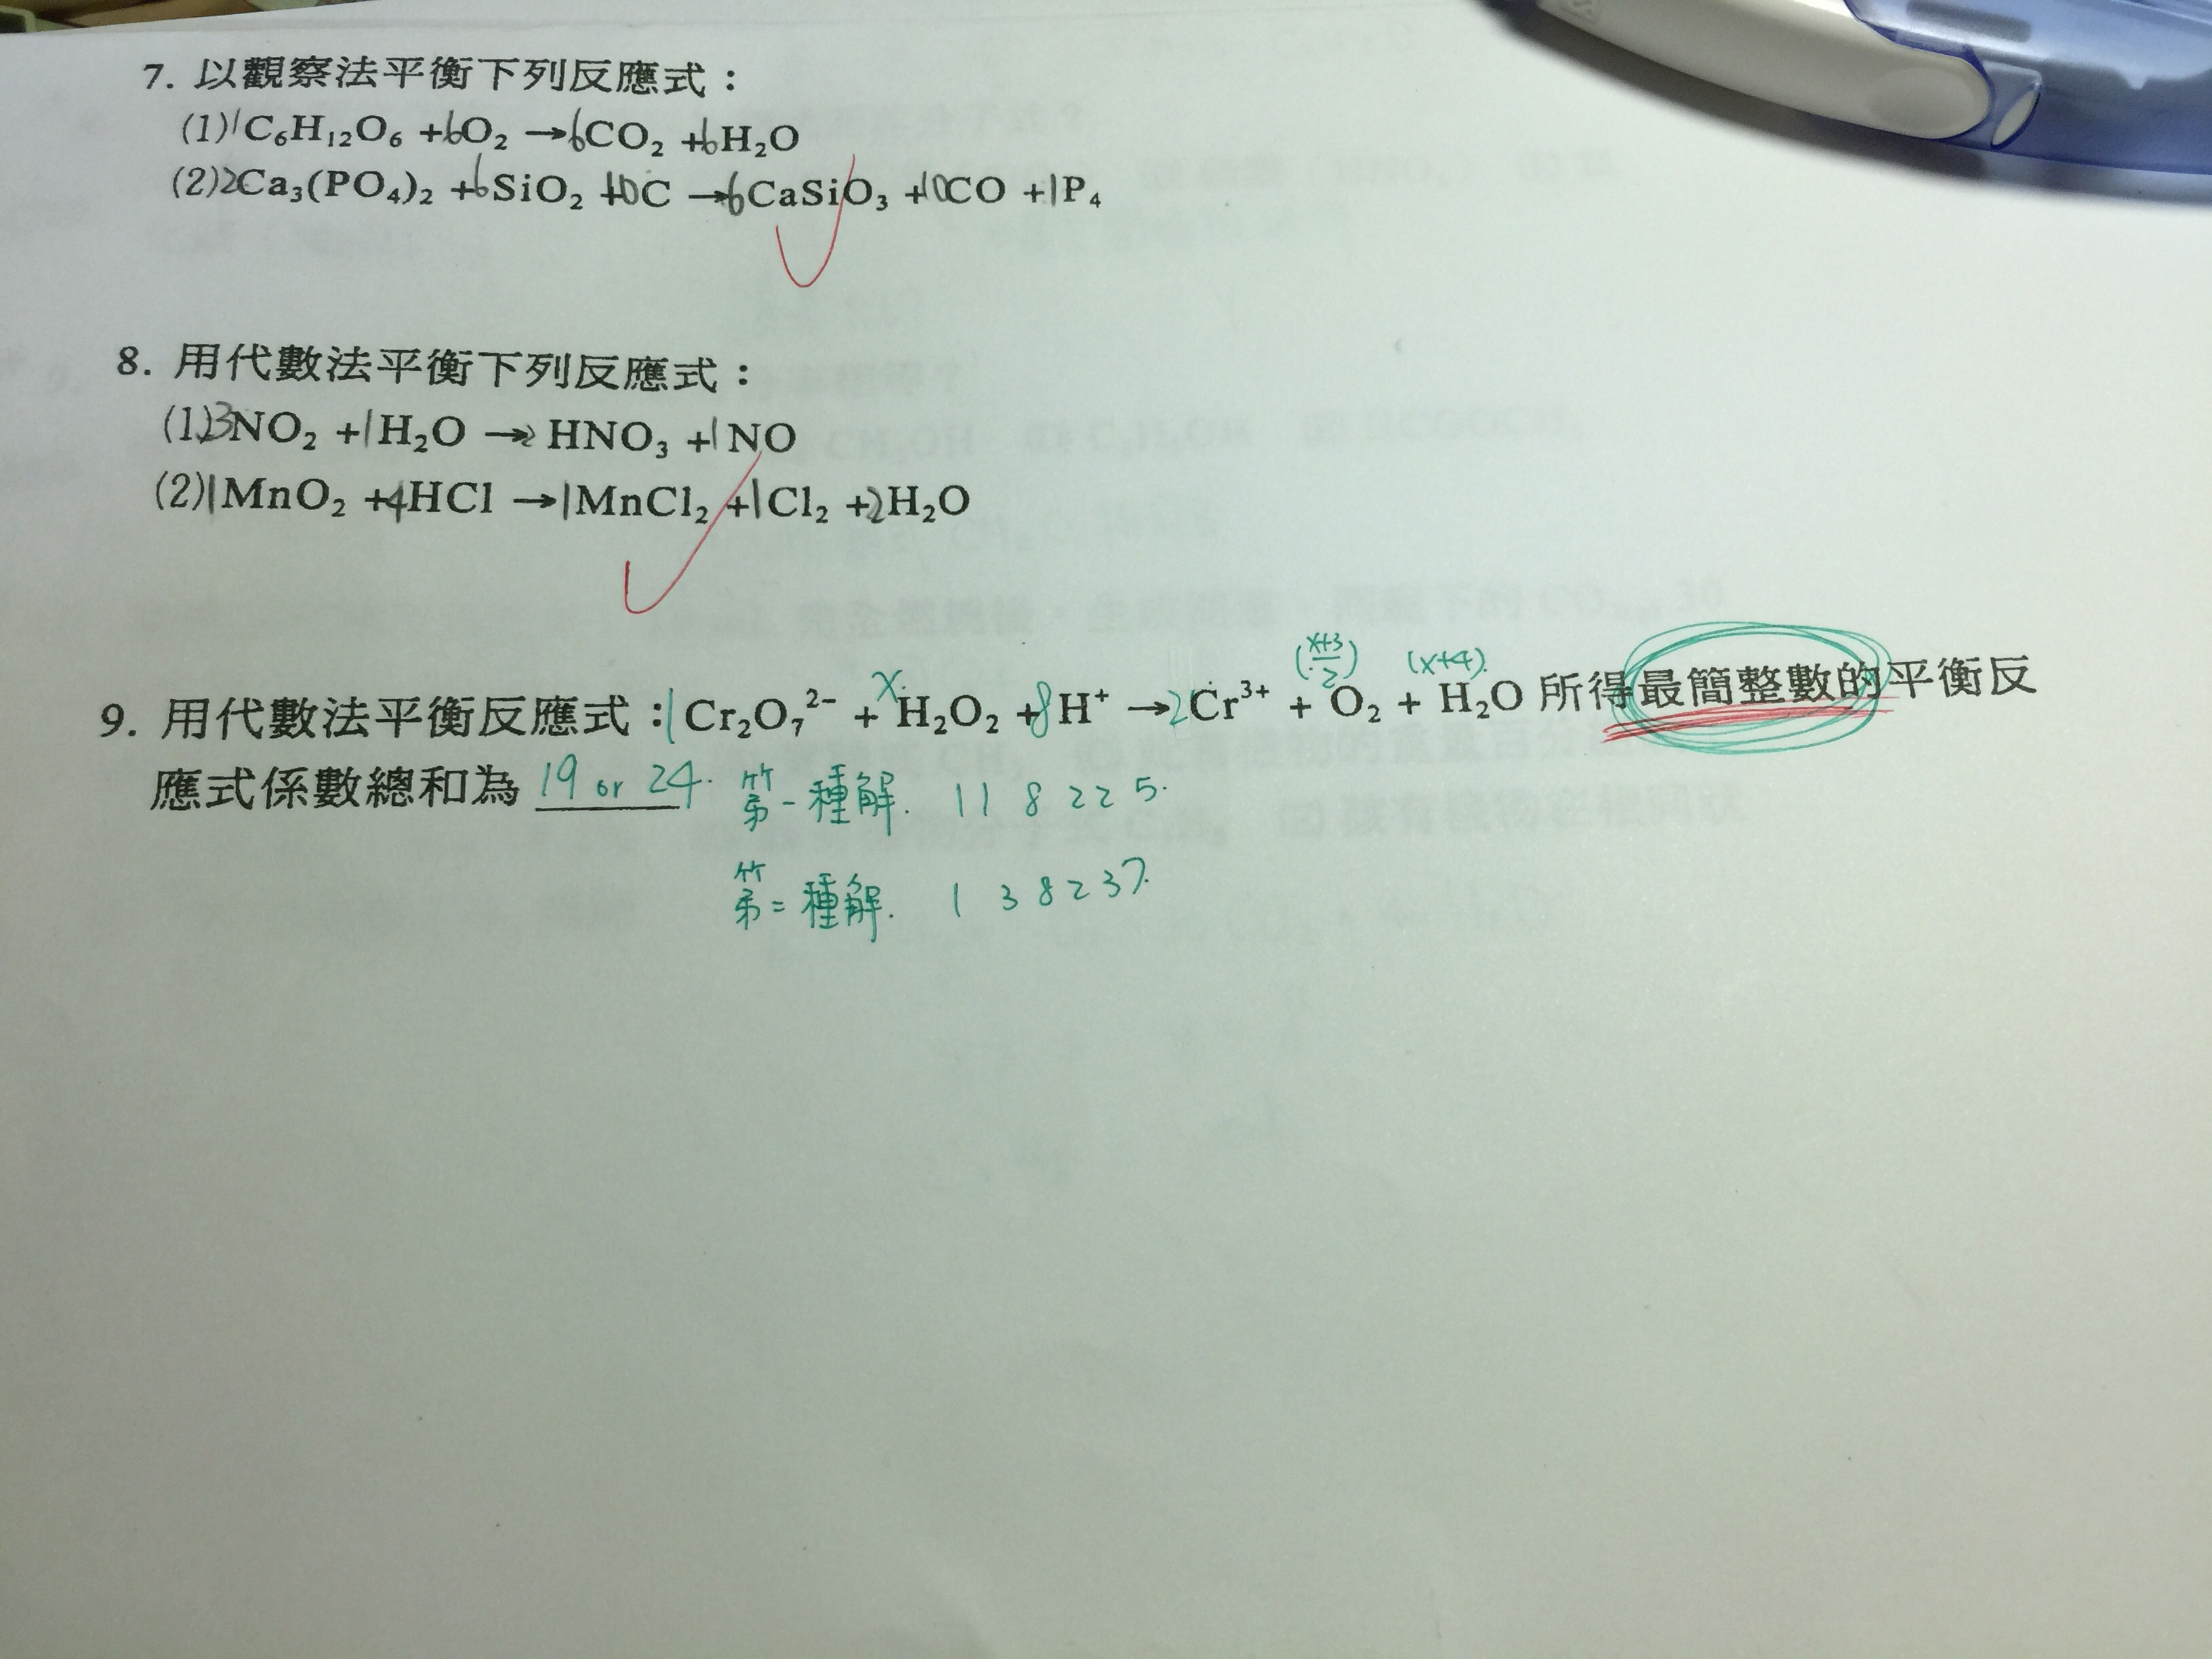 7. 以觀察法平衡下列反應式：
(1) 1 C₆H₁₂O₆ + 6 O₂ → 6 CO₂ + 6 H₂O
(2) 2 Ca₃(PO₄)₂ + 6 SiO₂ + 10 C → 6 CaSiO₃ + 10 CO + 1 P₄
8. 用代數法平衡下列反應式：
(1) 3 NO₂ + 1 H₂O → 2 HNO₃ + 1 NO
(2) 1 MnO₂ + 4 HCl → 1 MnCl₂ + 1 Cl₂ + 2 H₂O
(x+3/2) (x+4)
9. 用代數法平衡反應式：1 Cr₂O₇²⁻ + x H₂O₂ + 8 H⁺ → 2 Cr³⁺ + O₂ + H₂O 所得最簡整數的平衡反
應式係數總和為 19 or 24. 第一種解. 1 1 8 2 2 5.
第二種解. 1 3 8 2 3 7.